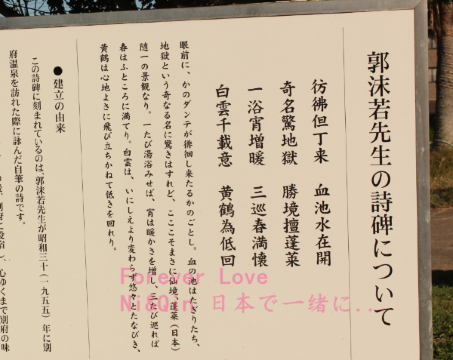 郭沫若先生の詩碑について
彷彿但丁来　血池水在開
奇名驚地獄　勝境擅蓬莱
一浴宵增暖　三巡春満懐
白雲千載意　黄鶴為低回
眼前に、かのダンテが徘徊し来たるかのごとし。血の池はたぎりたち、
地獄という奇なる名に驚きはすれど、こここそまさに仙境、蓬莱（日本）
随一の景観なり。一たび湯浴みせば、宵は暖かさを増し、三たび巡れば
春はふところに満てり。白雲は、いにしえより変わらず悠々とたなびき、
黄鶴は心地よさに飛び立ちかねて低きを回れり。
●建立の由来
この詩碑に刻まれているのは、郭沫若先生が昭和三十（一九五五）年に別
府温泉を訪れた際に詠んだ自筆の詩です。
心ゆくまで別府の味
Forever Love
NisQin 日本で一緒に...